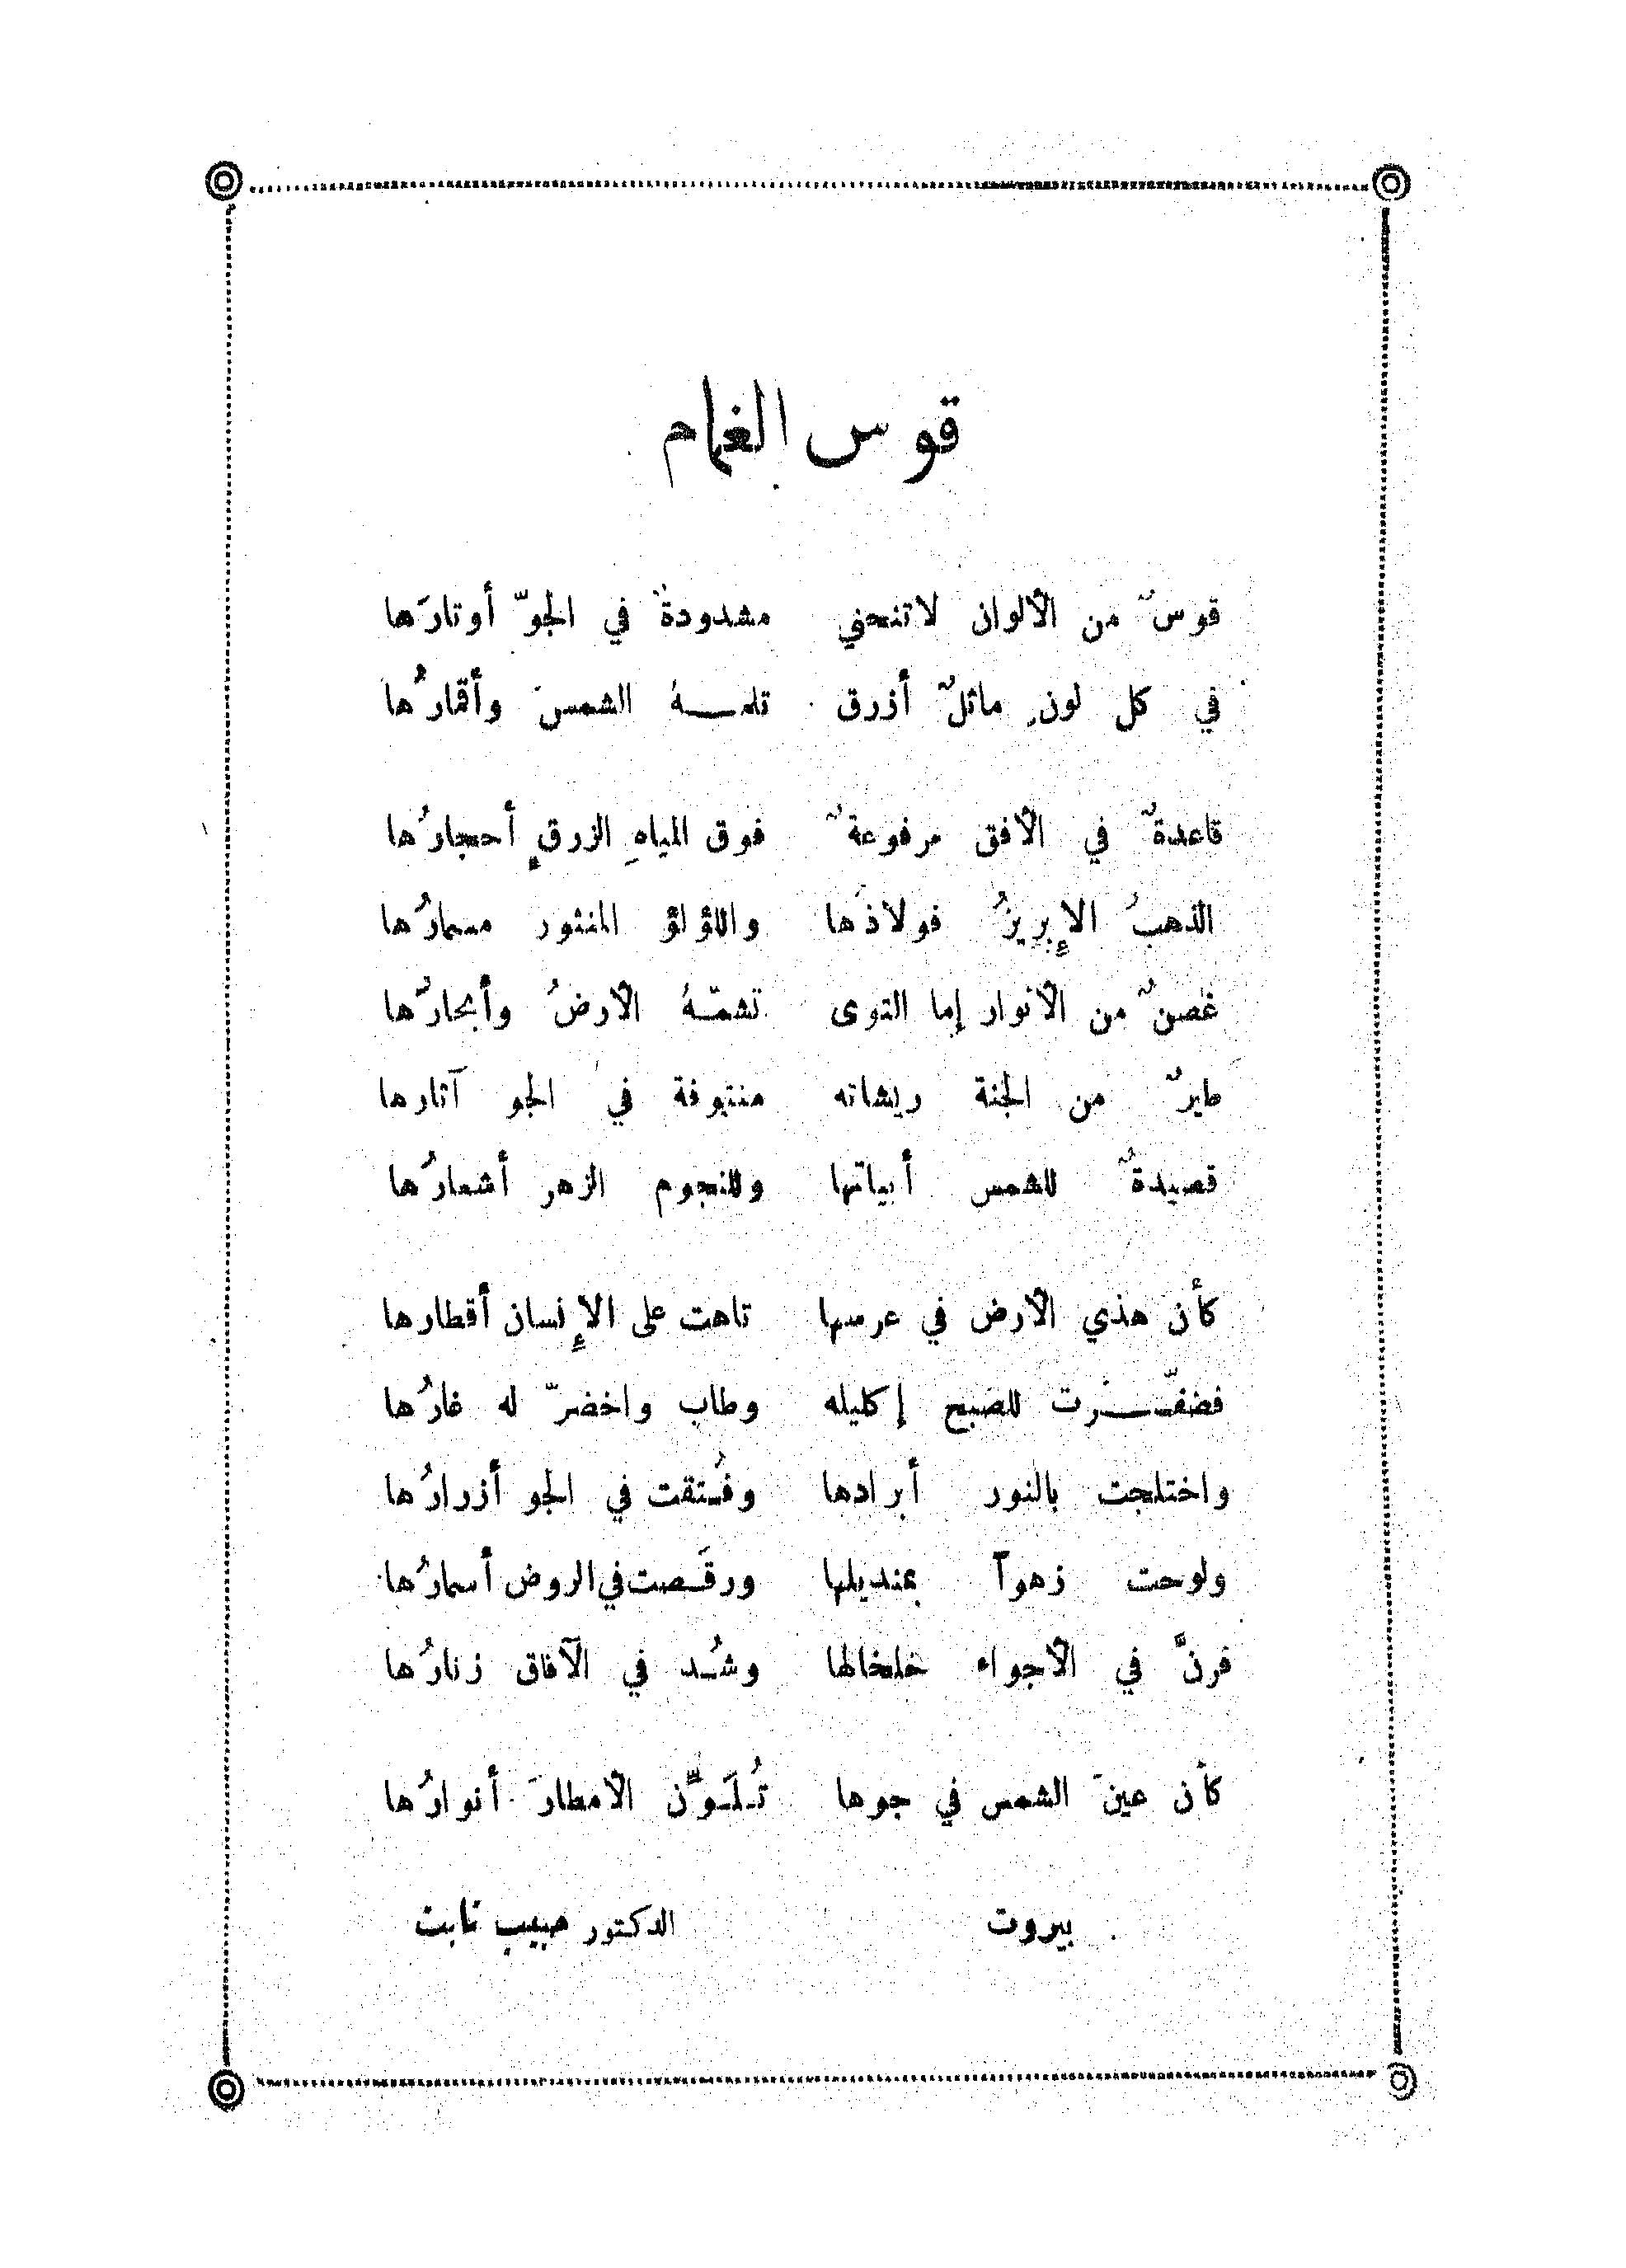 قوس الغمام
قوسٌ من الألوان لا تنحني مشدودةٌ في الجوّ أوتارَها
في كل لونٍ ماثلٌ أزرق تلمـــهُ الشمسَ وأقمارُها
قاعدةٌ في الأفق مرفوعةٌ فوق المياهِ الزرقِ أحجارُها
الذهبُ الإبريزُ فولاذَها واللؤلؤ المنثور مسمارُها
غصنٌ من الأنوار إما التوى تشمّـهُ الأرضُ وأبحارُها
طيرٌ من الجنة ريشاته منتوفة في الجو آثارها
قصيدةٌ للشمس أبياتها وللنجوم الزهر أشعارُها
كأن هذي الأرض في عرسها تاهت على الإنسان أقطارها
فضفّـــرت للصبح إكليله وطاب واخضرّ له غارُها
واختلجت بالنور أبرادها وفُـتقت في الجو أزرارُها
ولوحت زهواً بمنديلها ورقَـصت في الروض أسمارُها
فرنَّ في الأجواء خلخالها وشُـد في الآفاق زنارُها
كأن عينَ الشمس في جوها تُـلَـوِّن الأمطارَ أنوارُها
بيروت الدكتور حبيب ثابت